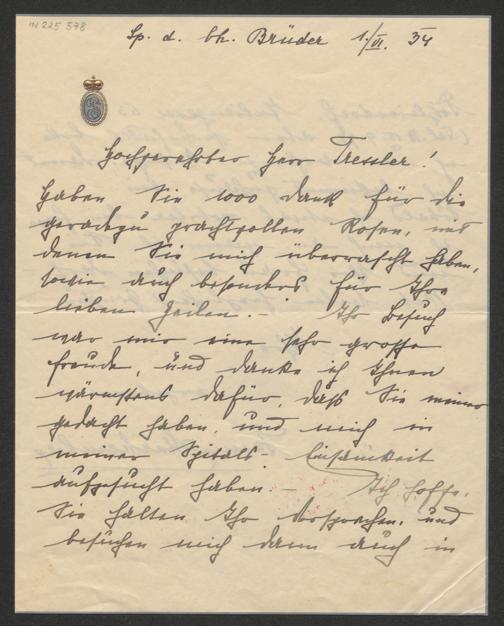 IN 225 578
Sp. d. bh. Brüder 1./VI. 34
Hochverehrter Herr Tressler!
Haben Sie 1000 Dank für die
geradezu prachtvollen Rosen, mit
denen Sie mich überrascht haben,
sowie auch besonders für Ihre
lieben Zeilen. – Ihr Besuch
war mir eine sehr grosse
Freude, und danke ich Ihnen
wärmstens dafür, daß Sie meiner
gedacht haben, und mich in
meiner Spitals-Einsamkeit
aufgesucht haben. – Ich hoffe,
Sie halten Ihr Versprechen, und
besuchen mich dann auch in